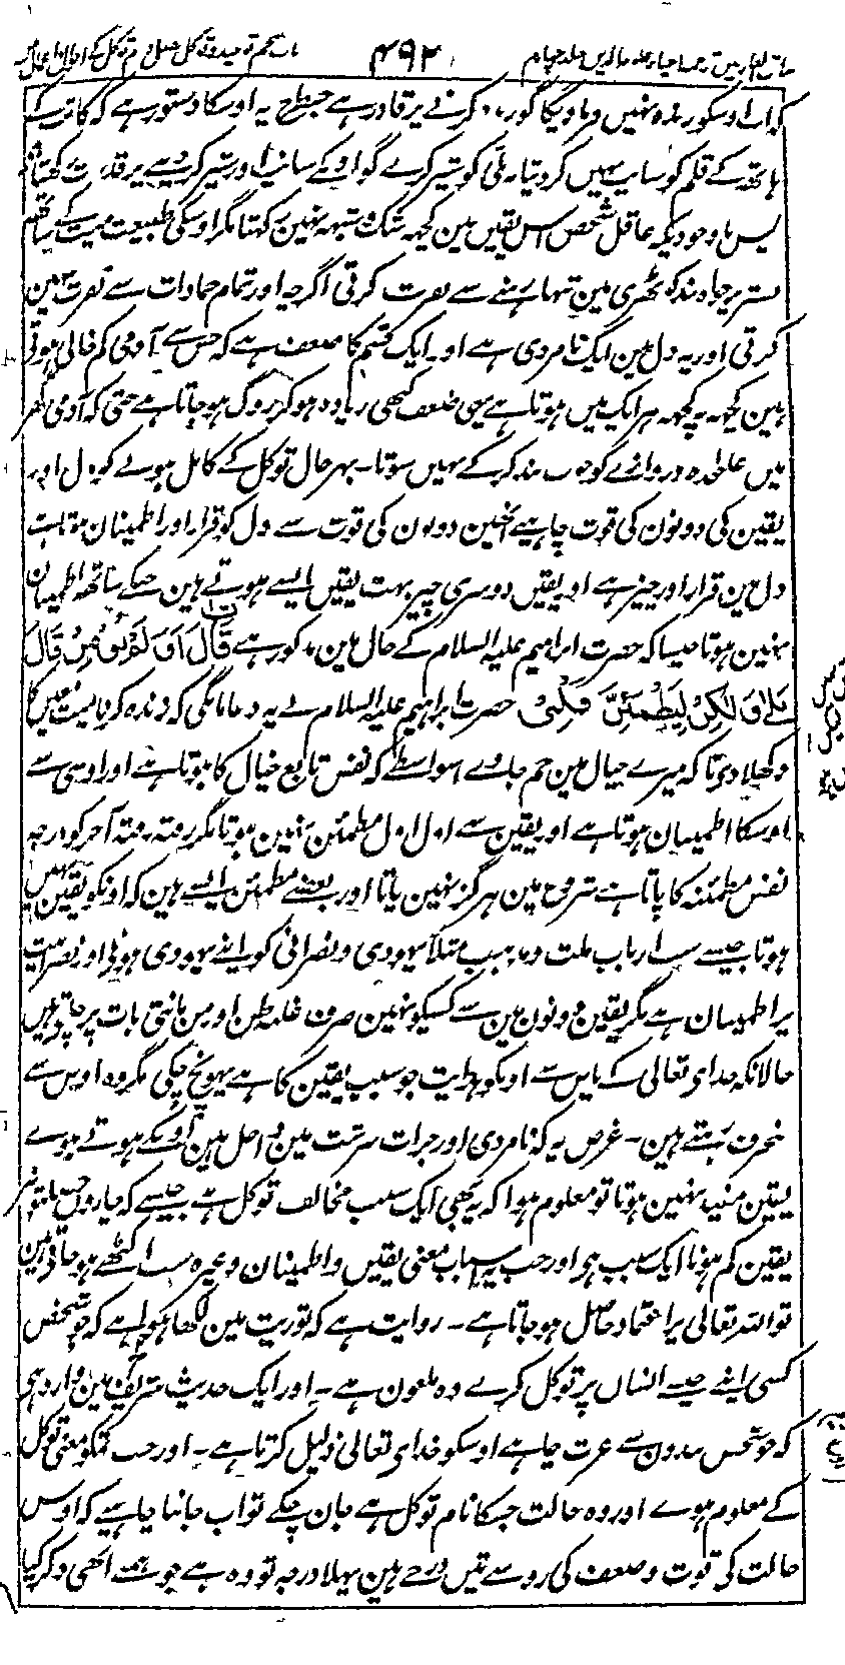 مذاق العارفین ترجمہ احیاء علوم الدین جلد چہارم ۴۹۲ باب پنجم توحید و توکل فصل دوم توکل کے احوال و اعمال میں
کہ اب اوسکو زندہ نہیں فرماویگا گو زندہ کرنے پر قادر ہے جسطرح یہ اوسکا دستور ہے کہ کاتب کے
ہاتھ کے قلم کو سانپ نہیں کر دیتا نہ بلی کو شیر کرے گو اوسکے سانپ اور شیر کر دینے پر قدرت رکھتا ہے
پس باوجودیکہ عاقل شخص اس یقین میں کچہہ شک و شبہہ نہین رکہتا مگر اوسکی طبیعت میت کے ساتھ
بستر پر خواہ بند کوٹھری مین تنہا رہنے سے نفرت کرتی اگرچہ اور تمام جمادات سے نفرت نہین
کرتی اور یہ دل مین ایک نامردی ہے اور ایک قسم کا ضعف ہے کہ جس سے آدمی کم خالی ہوتے
ہین کچہہ نہ کچہہ ہر ایک میں ہوتا ہے یہی ضعف کبھی زیادہ ہو کر روگ ہو جاتا ہے حتی کہ آدمی گھر
میں علحدہ دروازے کو خوب بند کر کے نہیں سوتا۔ بہر حال توکل کے کامل ہونے کو دل اور
یقین کی دونون کی قوت چاہیے انھین دونون کی قوت سے دل کو قرار اور اطمینان ہوتا ہے
دل مین قرار اور چیز ہے اور یقین دوسری چیز بہت یقین ایسے ہوتے ہین جنکے ساتھ اطمینان
نہین ہوتا جیسا کہ حضرت ابراہیم علیہ السلام کے حال مین مذکور ہے قَالَ اَوَ لَمْ تُؤْمِنْ قَالَ
بَلٰى وَ لٰكِنْ لِّیَطْمَئِنَّ قَلْبِیْ حضرت ابراہیم علیہ السلام نے یہ دعا مانگی کہ زندہ کرنا میت کا
دکھلا دو تاکہ میرے خیال مین جم جاوے اسواسطے کہ نفس تابع خیال کا ہوتا ہے اور اوسی سے
اوسکا اطمینان ہوتا ہے اور یقین سے اول اول مطمئن نہین ہوتا مگر رفتہ رفتہ آخر کو درجہ
نفس مطمئنہ کا پاتا ہے شروع مین ہرگز نہین پاتا اور بعضے مطمئن ایسے ہین کہ اونکو یقین نہین
ہوتا جیسے سب ارباب ملت و مذہب مثلاً یہودی و نصرانی کو اپنے یہودی ہونے اور نصرانیت
پر اطمینان ہے مگر یقین دونون مین سے کسیکو نہین صرف غلبہ ظن اور من مانتی بات پر چلتے ہین
حالانکہ خدای تعالی کے پاس سے اونکو ہدایت جو سبب یقین کا ہے پہونچ چکی مگر وہ اوس سے
منحرف رہتے ہین۔ غرض یہ کہ نامردی اور جرات سرشت مین داخل ہین اونکے ہوتے ہوئے
یقین مفید نہین ہوتا تو معلوم ہوا کہ یہ بھی ایک سبب مخالف توکل ہے جیسے کہ چارون
یقین کم ہونا ایک سبب ہی اور جب یہ اسباب یعنی یقین و اطمینان وغیرہ سب اکٹھے ہو جاتے ہین
تو اللہ تعالی پر اعتماد حاصل ہو جاتا ہے۔ روایت ہے کہ توریت مین لکھا ہوا ہے کہ جو شخص
کسی اپنے جیسے انسان پر توکل کرے وہ ملعون ہے۔ اور ایک حدیث شریف مین وارد ہی
کہ جو شخص بندون سے عزت چاہے اوسکو خدای تعالی ذلیل کرتا ہے۔ اور جب تمکو معنی توکل
کے معلوم ہوے اور وہ حالت جسکا نام توکل ہے جان چکے تو اب جاننا چاہیے کہ اوس
حالت کی قوت و ضعف کی رو سے تین درجے ہین پہلا درجہ تو وہ ہے جو ہمنے ابھی ذکر کیا